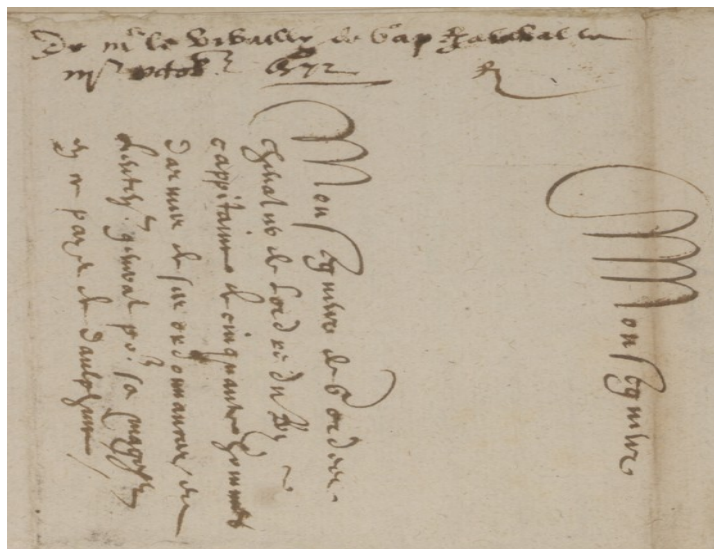 De mr le vibailly de
octobr 1572
Monseigneur
Monseigneur de Gordes
chevalier de lordre du Roy
cappitaine de cinquante hommes
darmes de ses ordonnances et
lieuten general pour sa mageste
en ce pays de daulphine